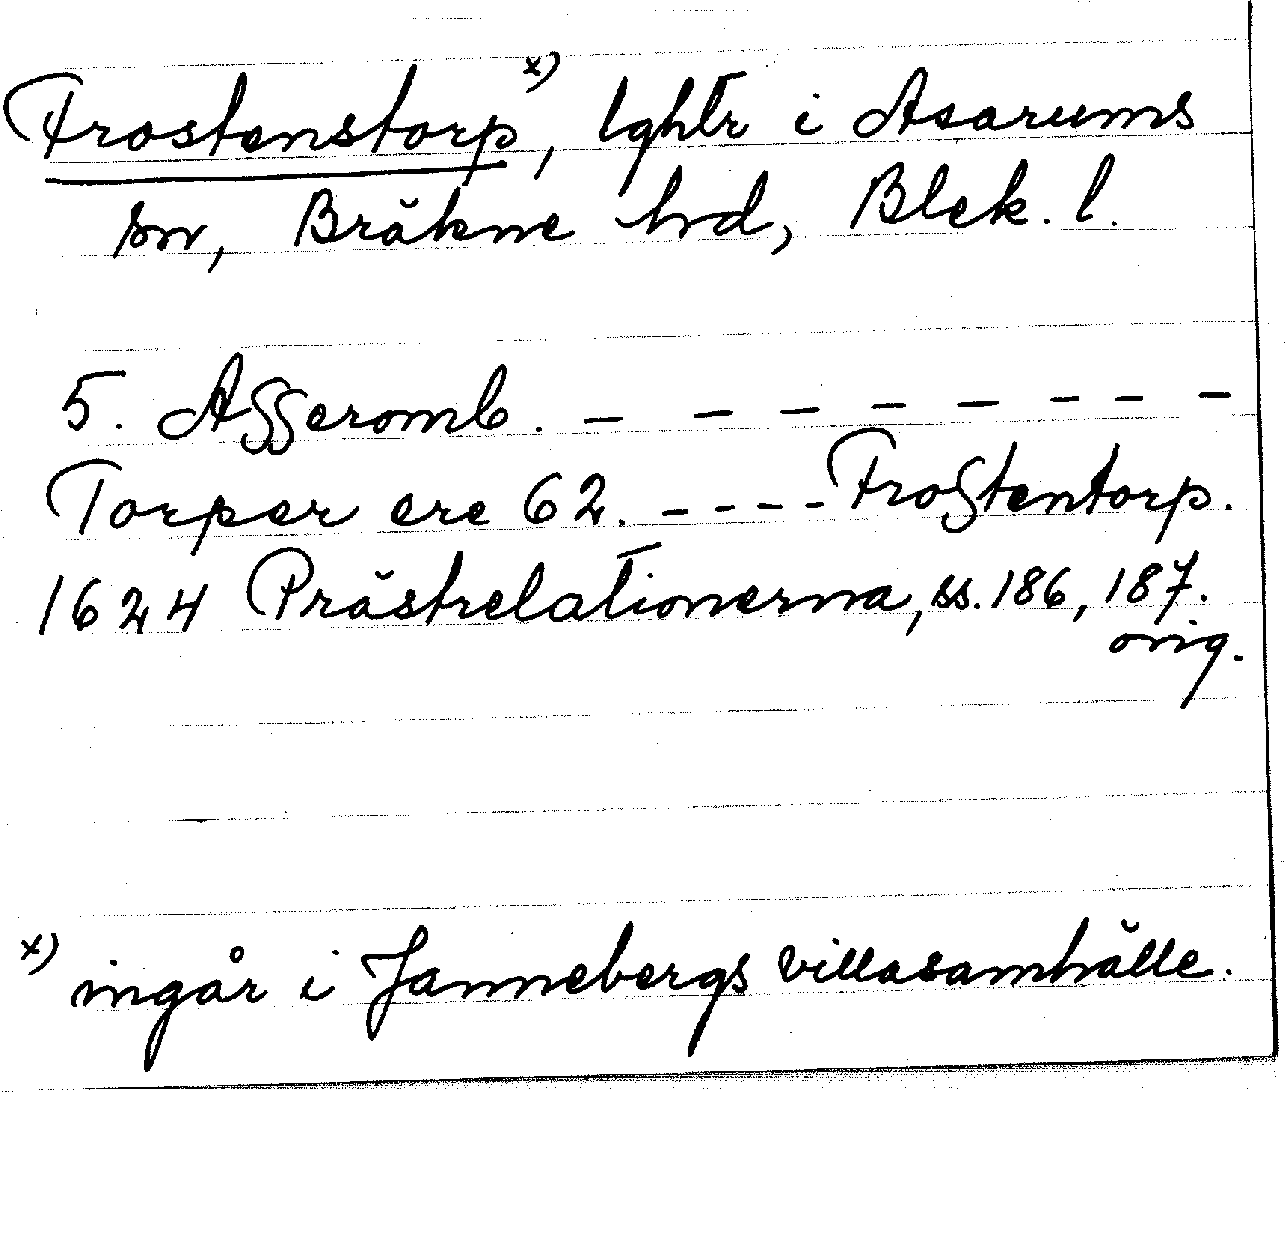 Frostenstorp x), lghtr i Asarums
sn, Bräkne hd, Blek. l.
5. Aſſeromb. – – – – – – – –
Torper ere 62. - - - - Froſtentorp.
1624 Prästrelationerna, ss. 186, 187.
orig.
x) ingår i Jannebergs villasamhälle.